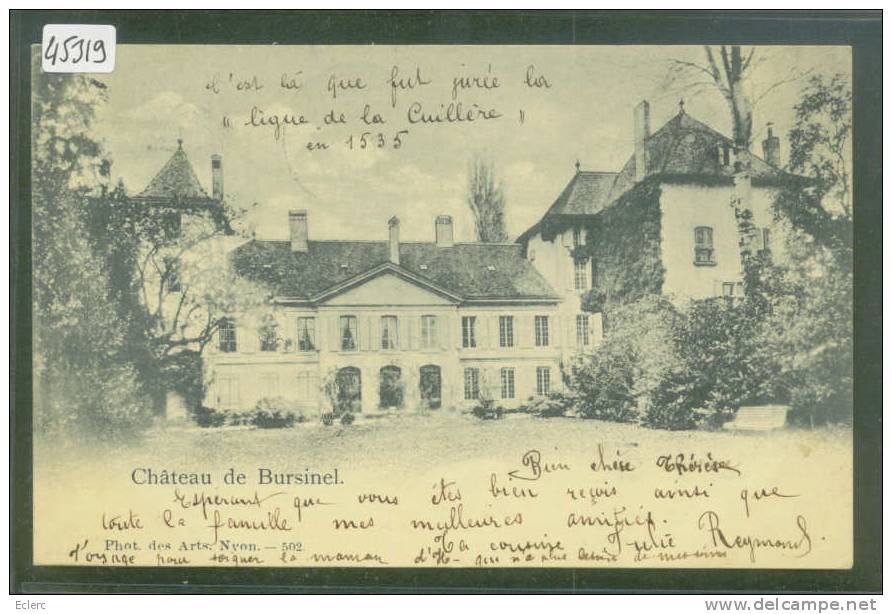 45319
C'est là que fut jurée la
"ligue de la Cuillère"
en 1535
Bien chère Thérèse
Château de Bursinel.
Esperant que vous êtes bien reçois ainsi que
toute la famille mes meilleures amitiés.
Phot. des Arts, Nyon. — 502.
Ta cousine Julie Reymond
pour soigner la maman d'H- qui n'a plus besoin de mes soins
Eclerc
www.delcampe.net